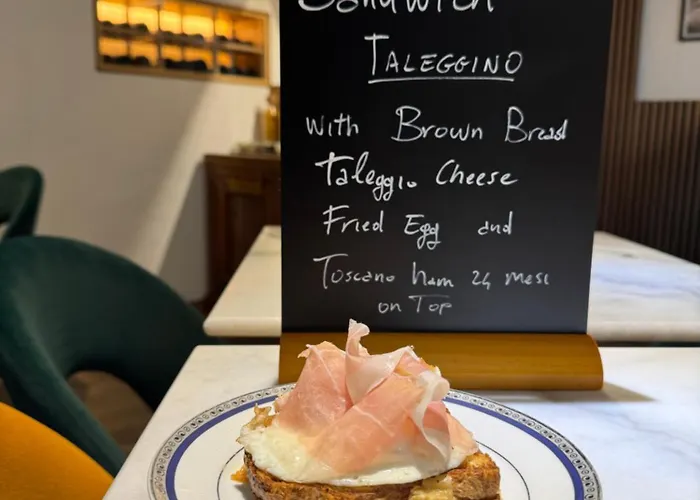 Sandwich
TALEGGINO
with Brown Bread
Taleggio Cheese
Fried Egg and
Toscano ham 24 mesi
on Top